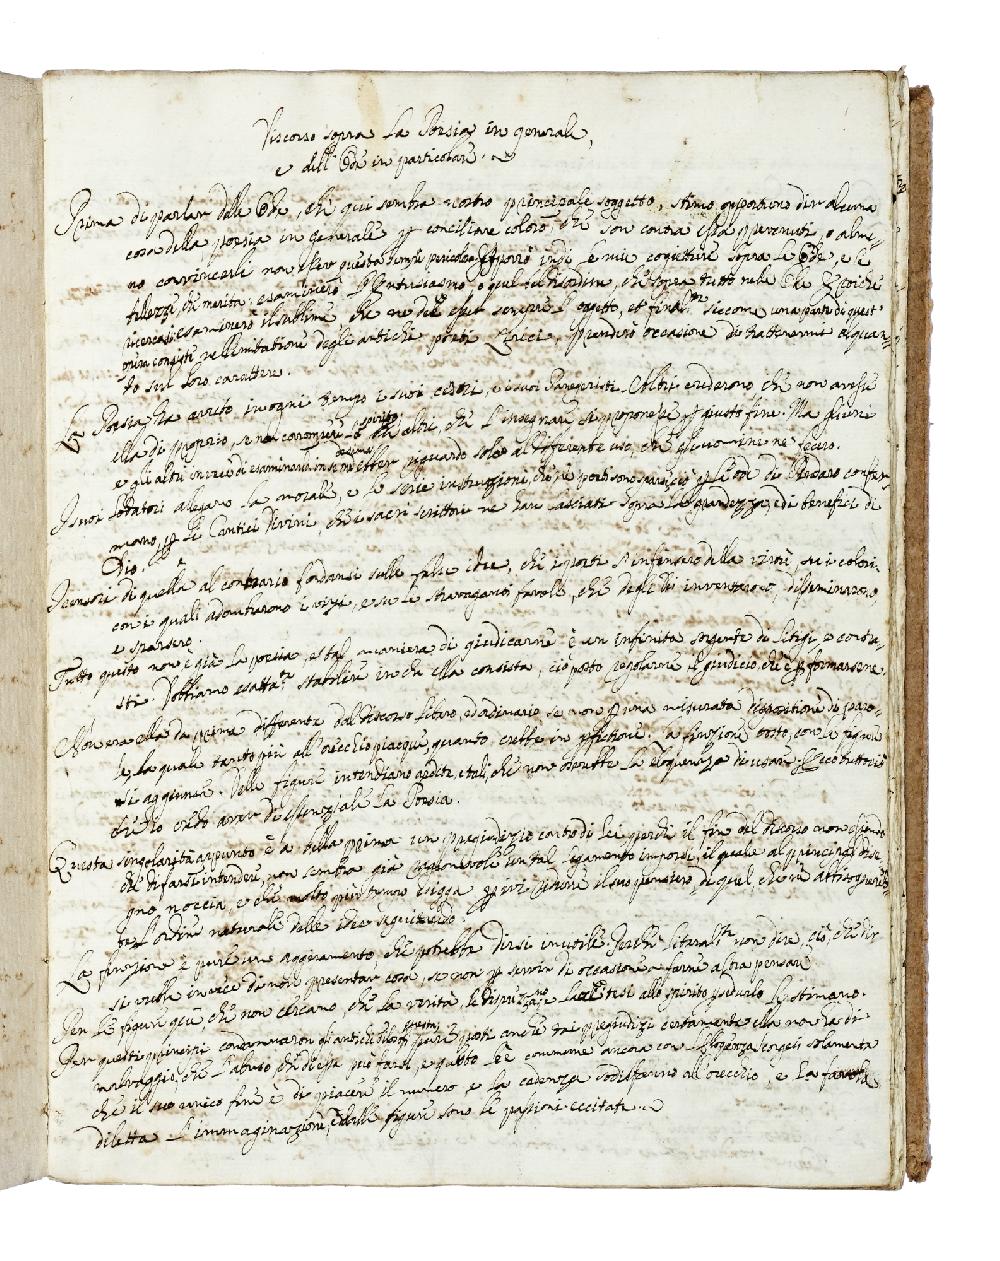 Discorso sopra la Poesia in generale,
e dell'Ode in particolare.
Prima di parlar delle Ode, che qui sembra nostro principale soggetto, stimo opportuno dir alcuna
cosa della poesia in generale per conciliare coloro, che son contra essa prevenuti, o alme-
no convincerli non esser questa Esporrò indi le mie cogietture sopra le Ode, e le
bellezze, che merita: esaminerò l'Entusiasmo, o quel bel disordine, che sopra tutto nelle Ode
ricercasi: esaminerò il sublime che ne dee esser sempre l'oggetto, et siccome una parte di quest'
opera consiste nell'imitazione degli antichi poeti Lirici, prenderò occasione di trattenermi alquan-
to sul loro carattere.
La Poesia ha avuto in ogni tempo i suoi censori, e i suoi Panegeristi. Altri crederono che non avesse
ella di proprio, se non corrompere lo spirito altri, che l'insegnare si proponesse per giusto fine. Ma gl'uni
e gli altri invece di esaminarla in se medesima ebber riguardo solo al differente uso, che gl'uomini ne fecero.
I suoi lodatori allegare la morale, e le serie instruzioni, che i poeti sono le Ode di Pindaro confer-
mano, e li Cantici Divini, che i sacri scrittori ne han lasciati sopra la grandezza, e di benefizi di
Dio.
I censori di quella al contrario fondansi sulle false idee, che i poeti s'infinsero della virtù, su i colori,
con i quali adombrarono i vizi, e su le stravaganti favole, che degli Dii inventarono, disseminarono
e sparsero.
Tutto questo non è già la poesia, e tal maniera di giudicarne è un infinita sorgente di litigi, e contra-
sti. Dobbiamo esatta.te stabilire in che ella consista, ciò posto regolarne il giudicio, che è per formarsene.
Non era ella da prima differente dal discorso libero, ed ordinario se non per una misurata disposizione di paro-
le, la quale tanto più all'orecchio piacque, quanto crebbe in perfezione. La finzione tosto, con le figure
si aggiunse. Delle figure intendiamo ardite, e tali, che non oserebbe la Eloquenza di usare. Ecco tutto ciò
che io credo aver di essenziale la Poesia.
Questa singolarità appunto è a bella prima un pregiudizio contro di lei perché il fine del discorso non essendo
che di farsi intendere, non sembra già ragionevole un tal legamento imporsi, il quale al principal dise-
gno noccia, e che molto più tempo esigga per esporre il suo pensiero, di quel che
se l'ordine naturale delle idee seguitando.
La finzione è pure un aggiramento che potrebbe dirsi inutile. Perche literal.te non dire, ciò, che dir
si vuole invece di non presentar cosa, se non per servir di occasione a farne altra pensare
Per le figure quei che non cercano, che la verità, le disprezzano tesi allo spirito per sedurlo le stimano.
Per questi principi condannaron gli antichi filosofi questi anche tai pregiudizi certamente ella non ha di
malvaggio, che l'abuso che di essa può farsi, e questo le è commune ancora con l'Eloquenza scorgesi solamente
che il suo unico fine è di piacere il numero e la cadenza sodisfanno all'orecchio, e la favola
diletta l'immaginazione, e dalle figure sono le passioni eccitate.